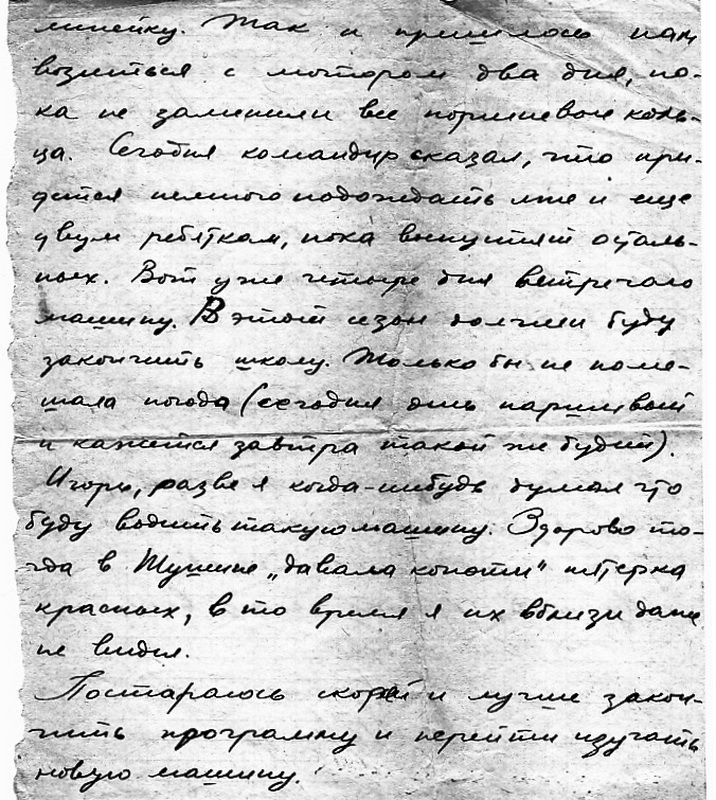 линейку. Так и пришлось нам
возиться с мотором два дня, по-
ка не заменили все поршневые коль-
ца. Сегодня командир сказал, что при-
дется немного подождать мне и еще
двум ребяткам, пока выпустят осталь-
ных. Вот уже четыре дня встречаю
машину. В этот сезон должен буду
закончить школу. Только бы не поме-
шала погода (сегодня день паршивый
и кажется завтра такой же будет).
Игорь, разве я когда-нибудь думал что
буду водить такую машину. Здорово то-
гда в Шушине „давала копоти" пятерка
красных, в то время я их вблизи даже
не видел.
Постараюсь скорей и лучше закон-
чить программу и перейти изучать
новую машину.